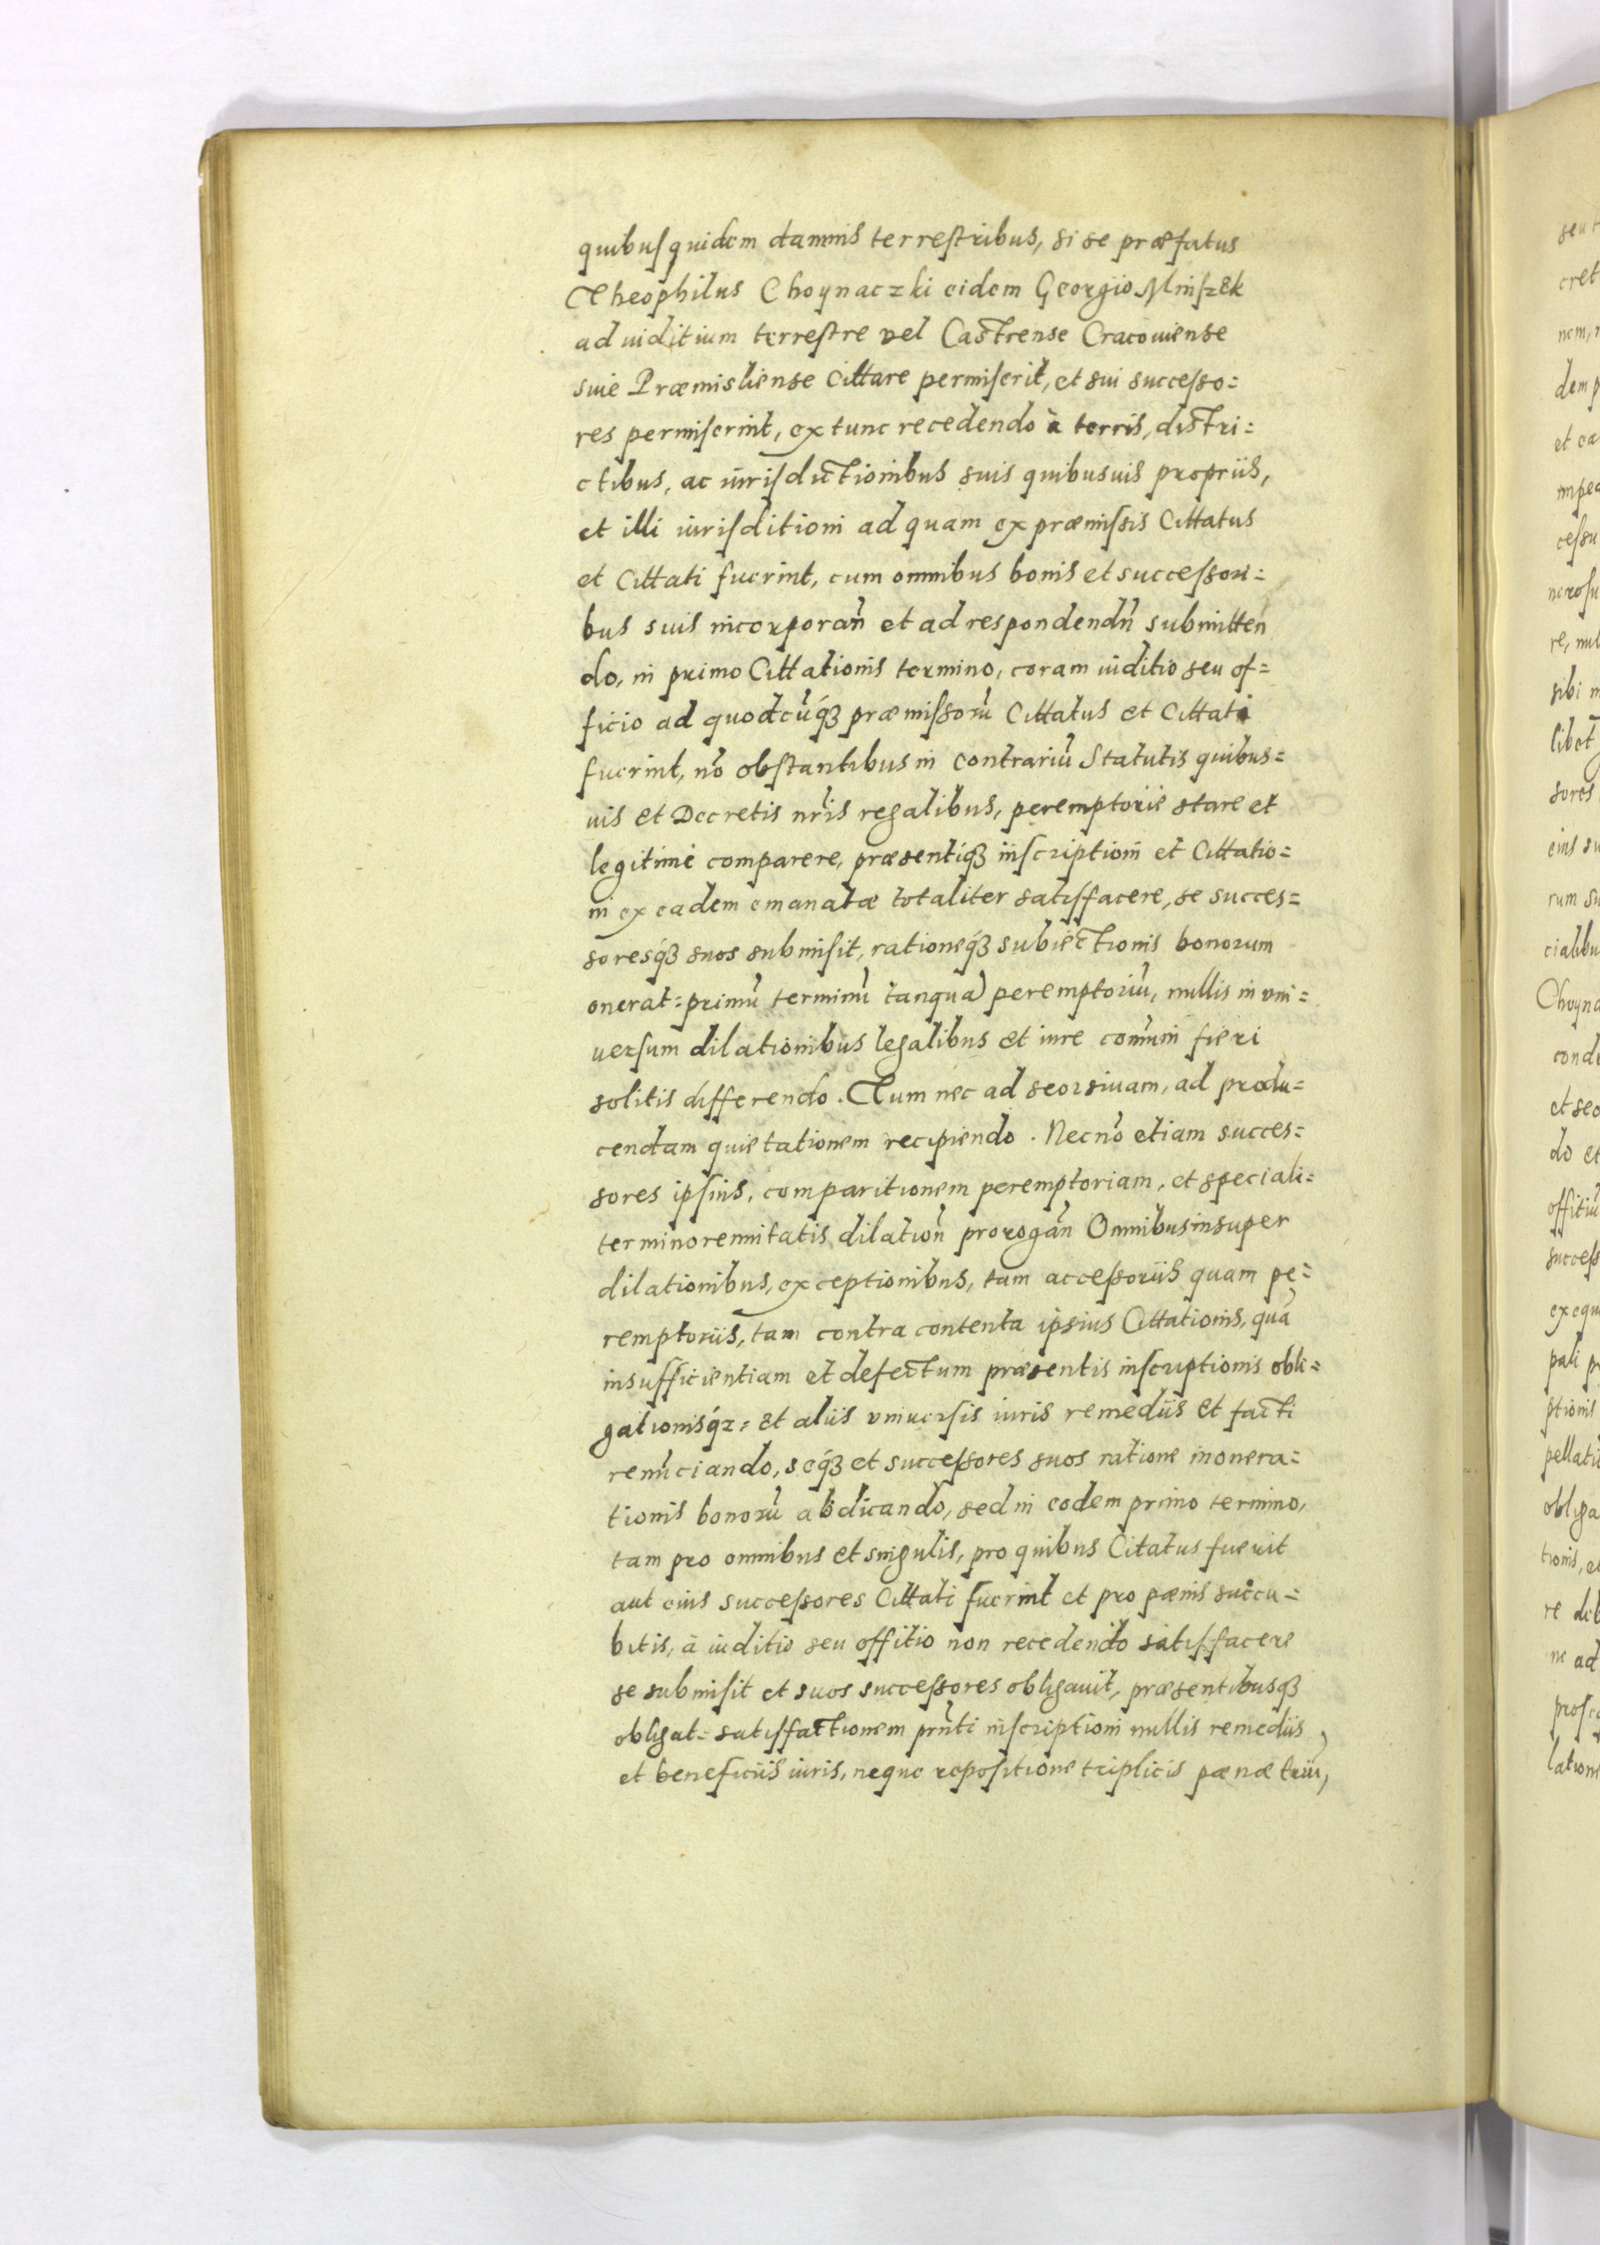 quibus quidem damnis terrestribus, si se præfatus
Theophilus Choynaczki eidem Georgio Mniszek
ad iuditium terrestre vel Castrense Cracouiense
siue Præmisliense Cittare permiserit, et sui successo=
res permiserint, ex tunc recedendo à terris, distri=
ctibus, ac iurisdictionibus suis quibusuis propriis,
et illi iurisditioni ad quam ex præmissis Cittatus
et Cittati fuerint, cum omnibus bonis et successori=
bus suis incorporañ et ad respondendñ submitten
do, in primo Cittationis termino, coram iuditio seu of=
ficio ad quodcũq́ꝫ præmissorũ Cittatus et Cittati
fuerint, nõ obstantibus in contrariũ Statutis quibus=
uis et Decretis nr̃is regalibus, peremptorie stare et
legitimè comparere, præsentiq́ꝫ inscriptioni et Cittatio=
ni ex eadem emanatæ totaliter satisfacere, se succes=
soresq́ꝫ suos submisit, rationeq́ꝫ subiectionis bonorum
onerat= primũ terminũ tanquã peremptoriũ, nullis in vni=
uersum dilationibus legalibus et iure com̃uni fieri
solitis differendo. Tum nec ad seorsiuam, ad produ=
cendam quietationem recipiendo. Necnõ etiam succes=
sores ipsius, comparitionem peremptoriam, et speciali=
ter minorennitatis dilatioñ prorogañ Omnibus insuper
dilationibus, exceptionibus, tam accessoriis quam pe=
remptoriis, tam contra contenta ipsius Cittationis, quã
insufficientiam et defectum præsentis inscriptionis obli=
gationisq́ꝫ= et aliis vniuersis iuris remediis et facti
renũciando, seq́ꝫ et successores suos ratione inonera=
tionis bonorũ abdicando, sed in eodem primo termino,
tam pro omnibus et singulis, pro quibus Citatus fuerit
aut eius successores Cittati fuerint et pro pænis succu=
bitis, à iuditio seu offitio non recedendo satisfacere
se submisit et suos successores obligauit, præsentibusq́ꝫ
obligat= satisfactionem pñti inscriptioni nullis remediis
et beneficiis iuris, neque repositione triplicis pænæ triũ,